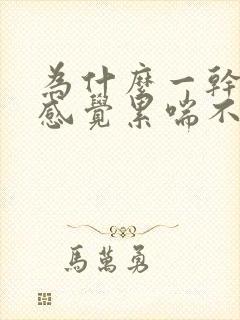 為什麼一幹
感覺累喘不
馬萬勇